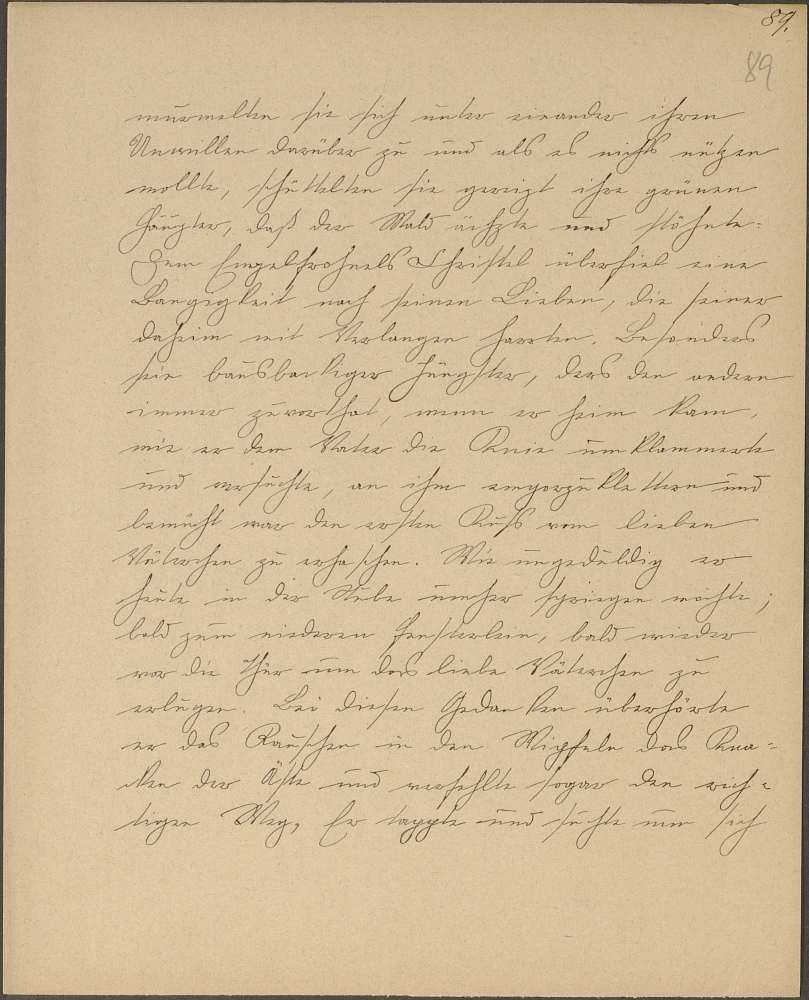 89.
89
murmelten sie sich unter einander ihren
Unwillen darüber zu und als es nichts nützen
wollte, schüttelten sie gereizt ihre grünen
Häupter, daß der Wald ächzte und stöhnte.
Dem Engelfrohnels Christel überfiel eine
Bangigkeit nach seinen Lieben, die seiner
daheim mit Verlangen harrten. Besonders
sein bausbackiger Jüngster, ders den andern
immer zuvorthat, wenn er heim kam,
wie er dem Vater die Knie umklammerte
und versuchte, an ihm emporzuklettern und
bemüht war den ersten Kuß vom lieben
Väterchen zu erhaschen. Wie ungeduldig er
heute in der Stube umher springen mochte;
bald zum niederen Fensterlein, bald wieder
vor die Thür um das liebe Väterchen zu
erlugen. Bei diesen Gedanken überhörte
er das Rauschen in den Wipfeln das Kna-
cken der Äste und verfehlte sogar den rich-
tigen Weg. Er tappte und suchte um sich